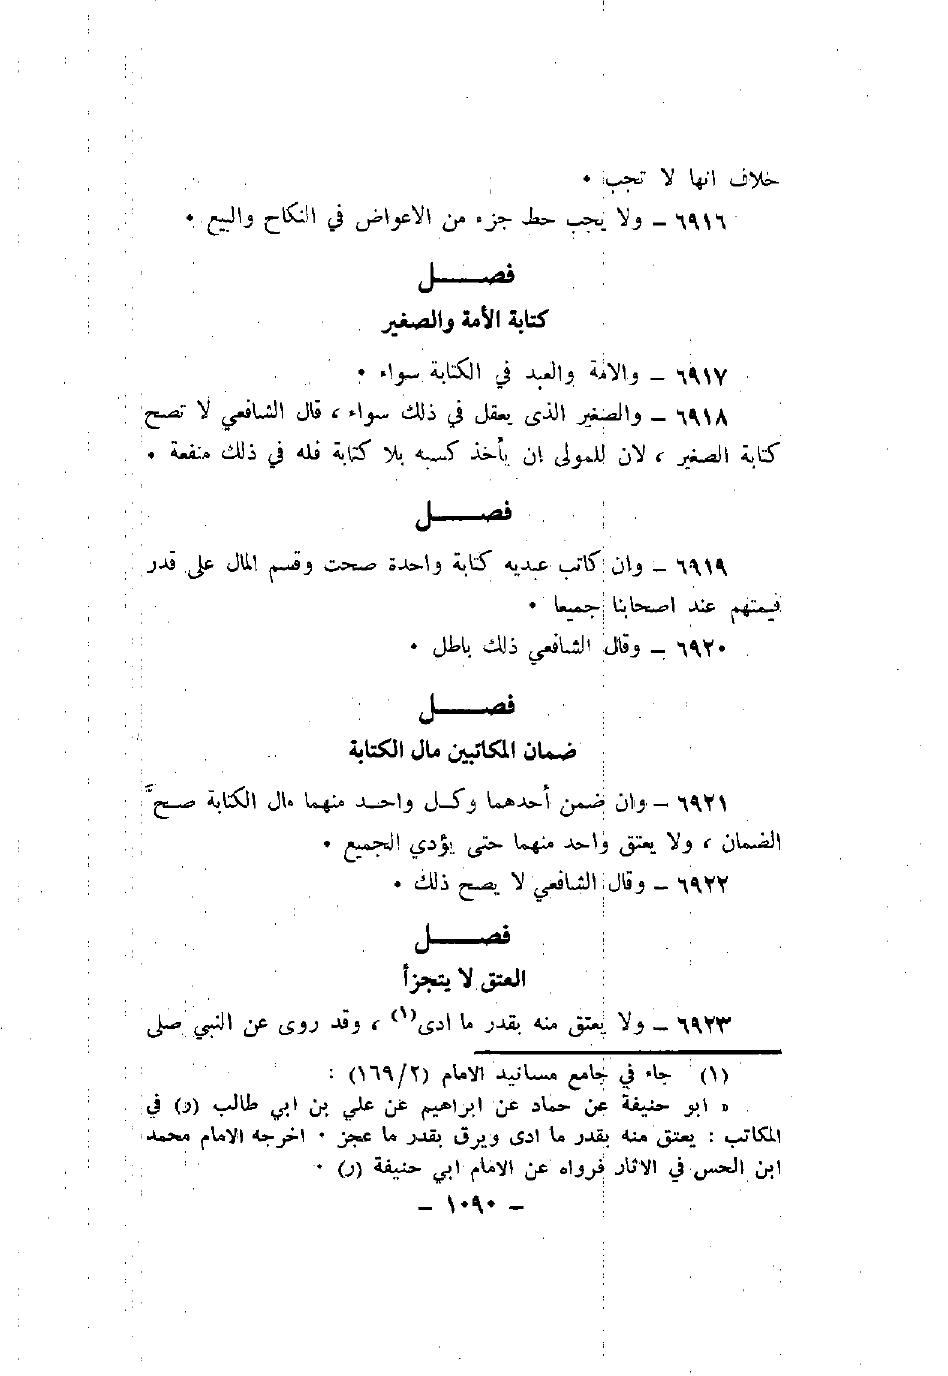 خلاف انها لا تجب .
٦٩١٦ ــ ولا يجب حط جزء من الاعواض في النكاح والبيع .
فصـــــل
كتابة الأمة والصغير
٦٩١٧ ــ والامة والعبد في الكتابة سواء .
٦٩١٨ ــ والصغير الذى يعقل في ذلك سواء ، قال الشافعي لا تصح
كتابة الصغير ، لان للمولى ان يأخذ كسبه بلا كتابة فله في ذلك منفعة .
فصـــــل
٦٩١٩ ــ وان كاتب عبديه كتابة واحدة صحت وقسم المال على قدر
قيمتهم عند اصحابنا جميعا .
٦٩٢٠ ــ وقال الشافعي ذلك باطل .
فصـــــل
ضمان المكاتبين مال الكتابة
٦٩٢١ ــ وان ضمن أحدهما وكـل واحـد منهما مال الكتابة صـحّ
الضمان ، ولا يعتق واحد منهما حتى يؤدي الجميع .
٦٩٢٢ ــ وقال الشافعي لا يصح ذلك .
فصـــــل
العتق لا يتجزأ
٦٩٢٣ ــ ولا يعتق منه بقدر ما ادى(١) ، وقد روى عن النبي صلى
(١) جاء في جامع مسانيد الامام (١٦٩/٢) :
« ابو حنيفة عن حماد عن ابراهيم عن علي بن ابي طالب (ر) في
المكاتب : يعتق منه بقدر ما ادى ويرق بقدر ما عجز . اخرجه الامام محمد
ابن الحسن في الاثار فرواه عن الامام ابي حنيفة (ر) .
ــ ١٠٩٠ ــ